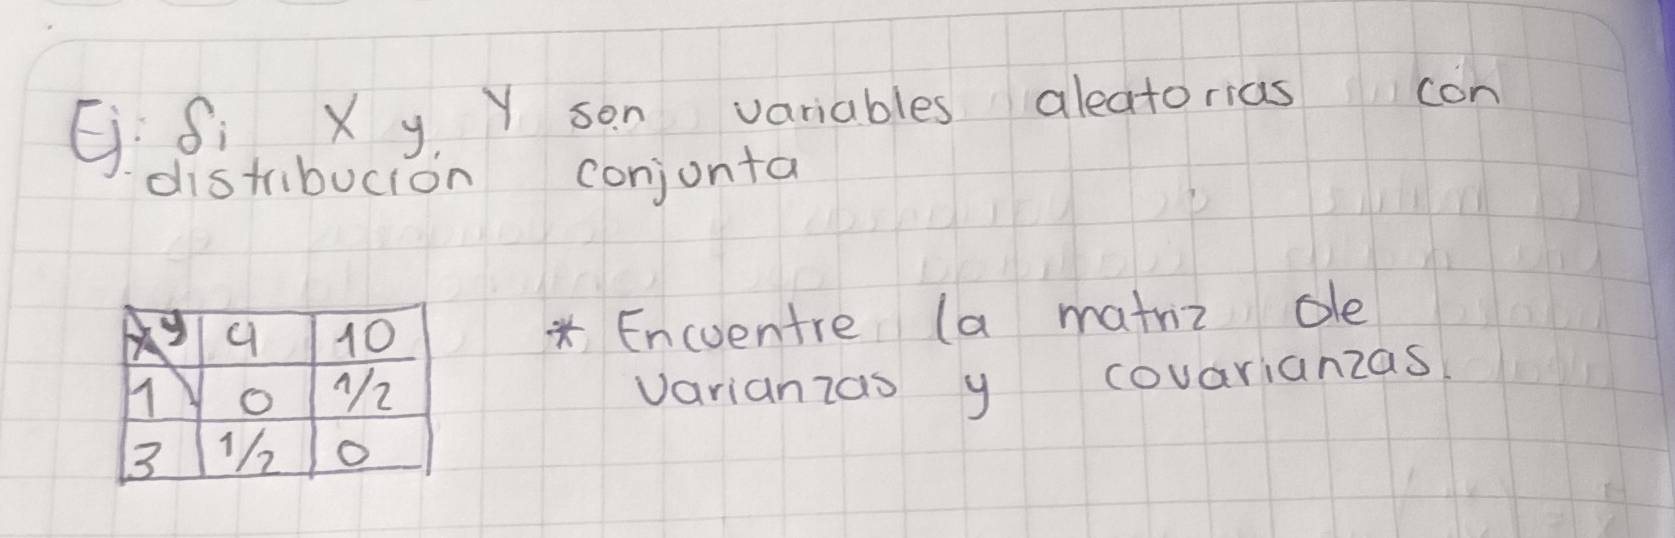 Ej: Si X y Y son variables aleatorias con
distribución conjunta
x y 4 10
1 0 1/2
3 1/2 0
* Encuentre la matriz de
varianzas y covarianzas.